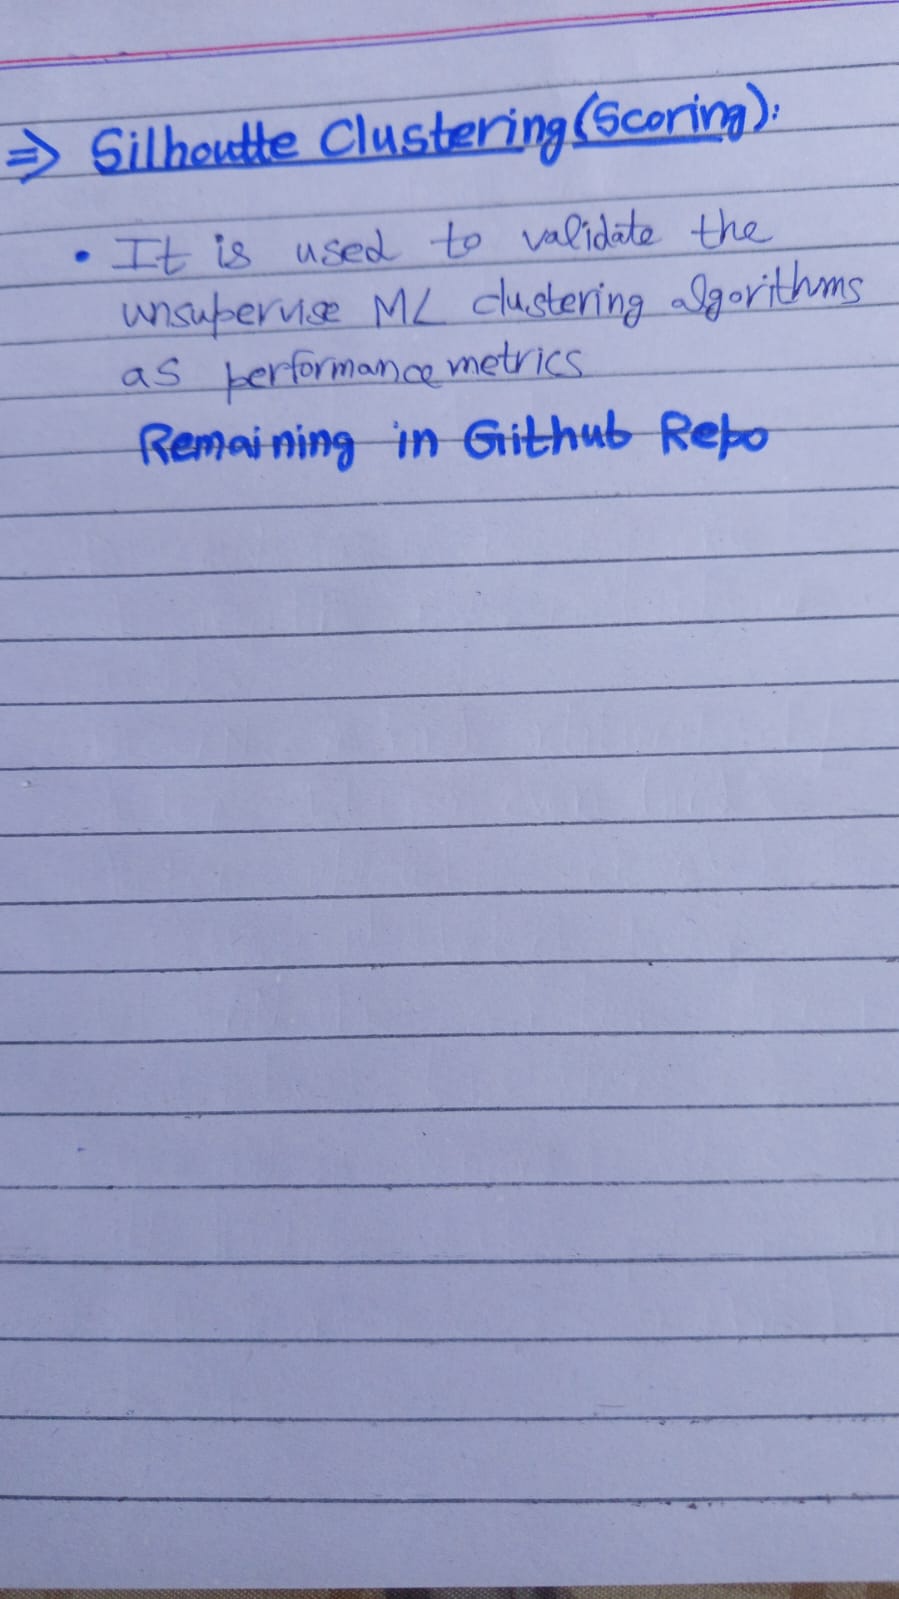 ⇒ Silhoutte Clustering (Scoring):
• It is used to validate the
unsupervise ML clustering algorithms
as performance metrics
Remaining in Github Repo